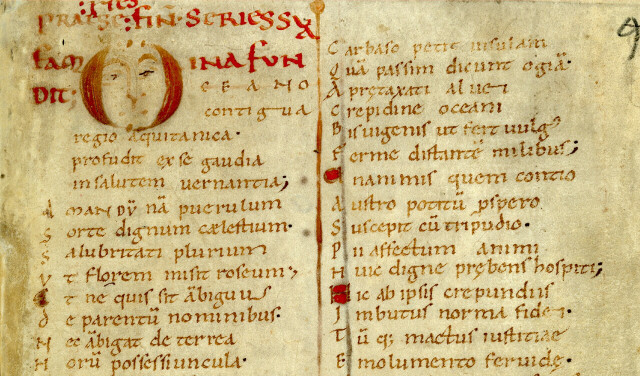 PRAESE FINIT SERIES SVA
FAM INA FUN
DIT;
OCEANO
contigua
regio aquitanica.
profudit ex se gaudia
in salutem vernantia;
A MANDŪ nā puerulum
S orte dignum cælestium.
S alubritati plurium
V t florem misit roseum;
E t ne quis sit ābiguus
d e parentū nominibus.
N ec ābigat de terrea
H orū possessiuncula.
C arbaso petit insulam
Q uā passim dicunt ogiā.
A pretaxati alvei
C repidine oceani
B is vigenis ut fert vulg9
F erme distantē milibus;
nanimis quem contio
A ustro potitū pspero
S uscepit cū tripudio.
P ii affectum animi
H uic digne prębens hospiti;
H ic ab ipsis crepundiis
I mbutus norma fidei.
T ū q; mactus iustitiae
E molumento fervide.